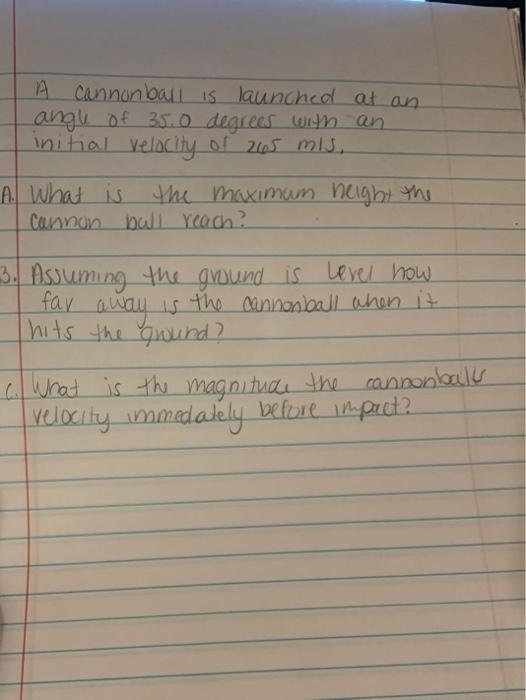 A cannonball is launched at an
angle of 35.0 degrees with an
initial velocity of 265 m/s,
A. What is the maximum height the
cannon ball reach?
B. Assuming the ground is level how
far away is the cannonball when it
hits the ground?
C. What is the magnitude the cannonballs
velocity immedately before impact?